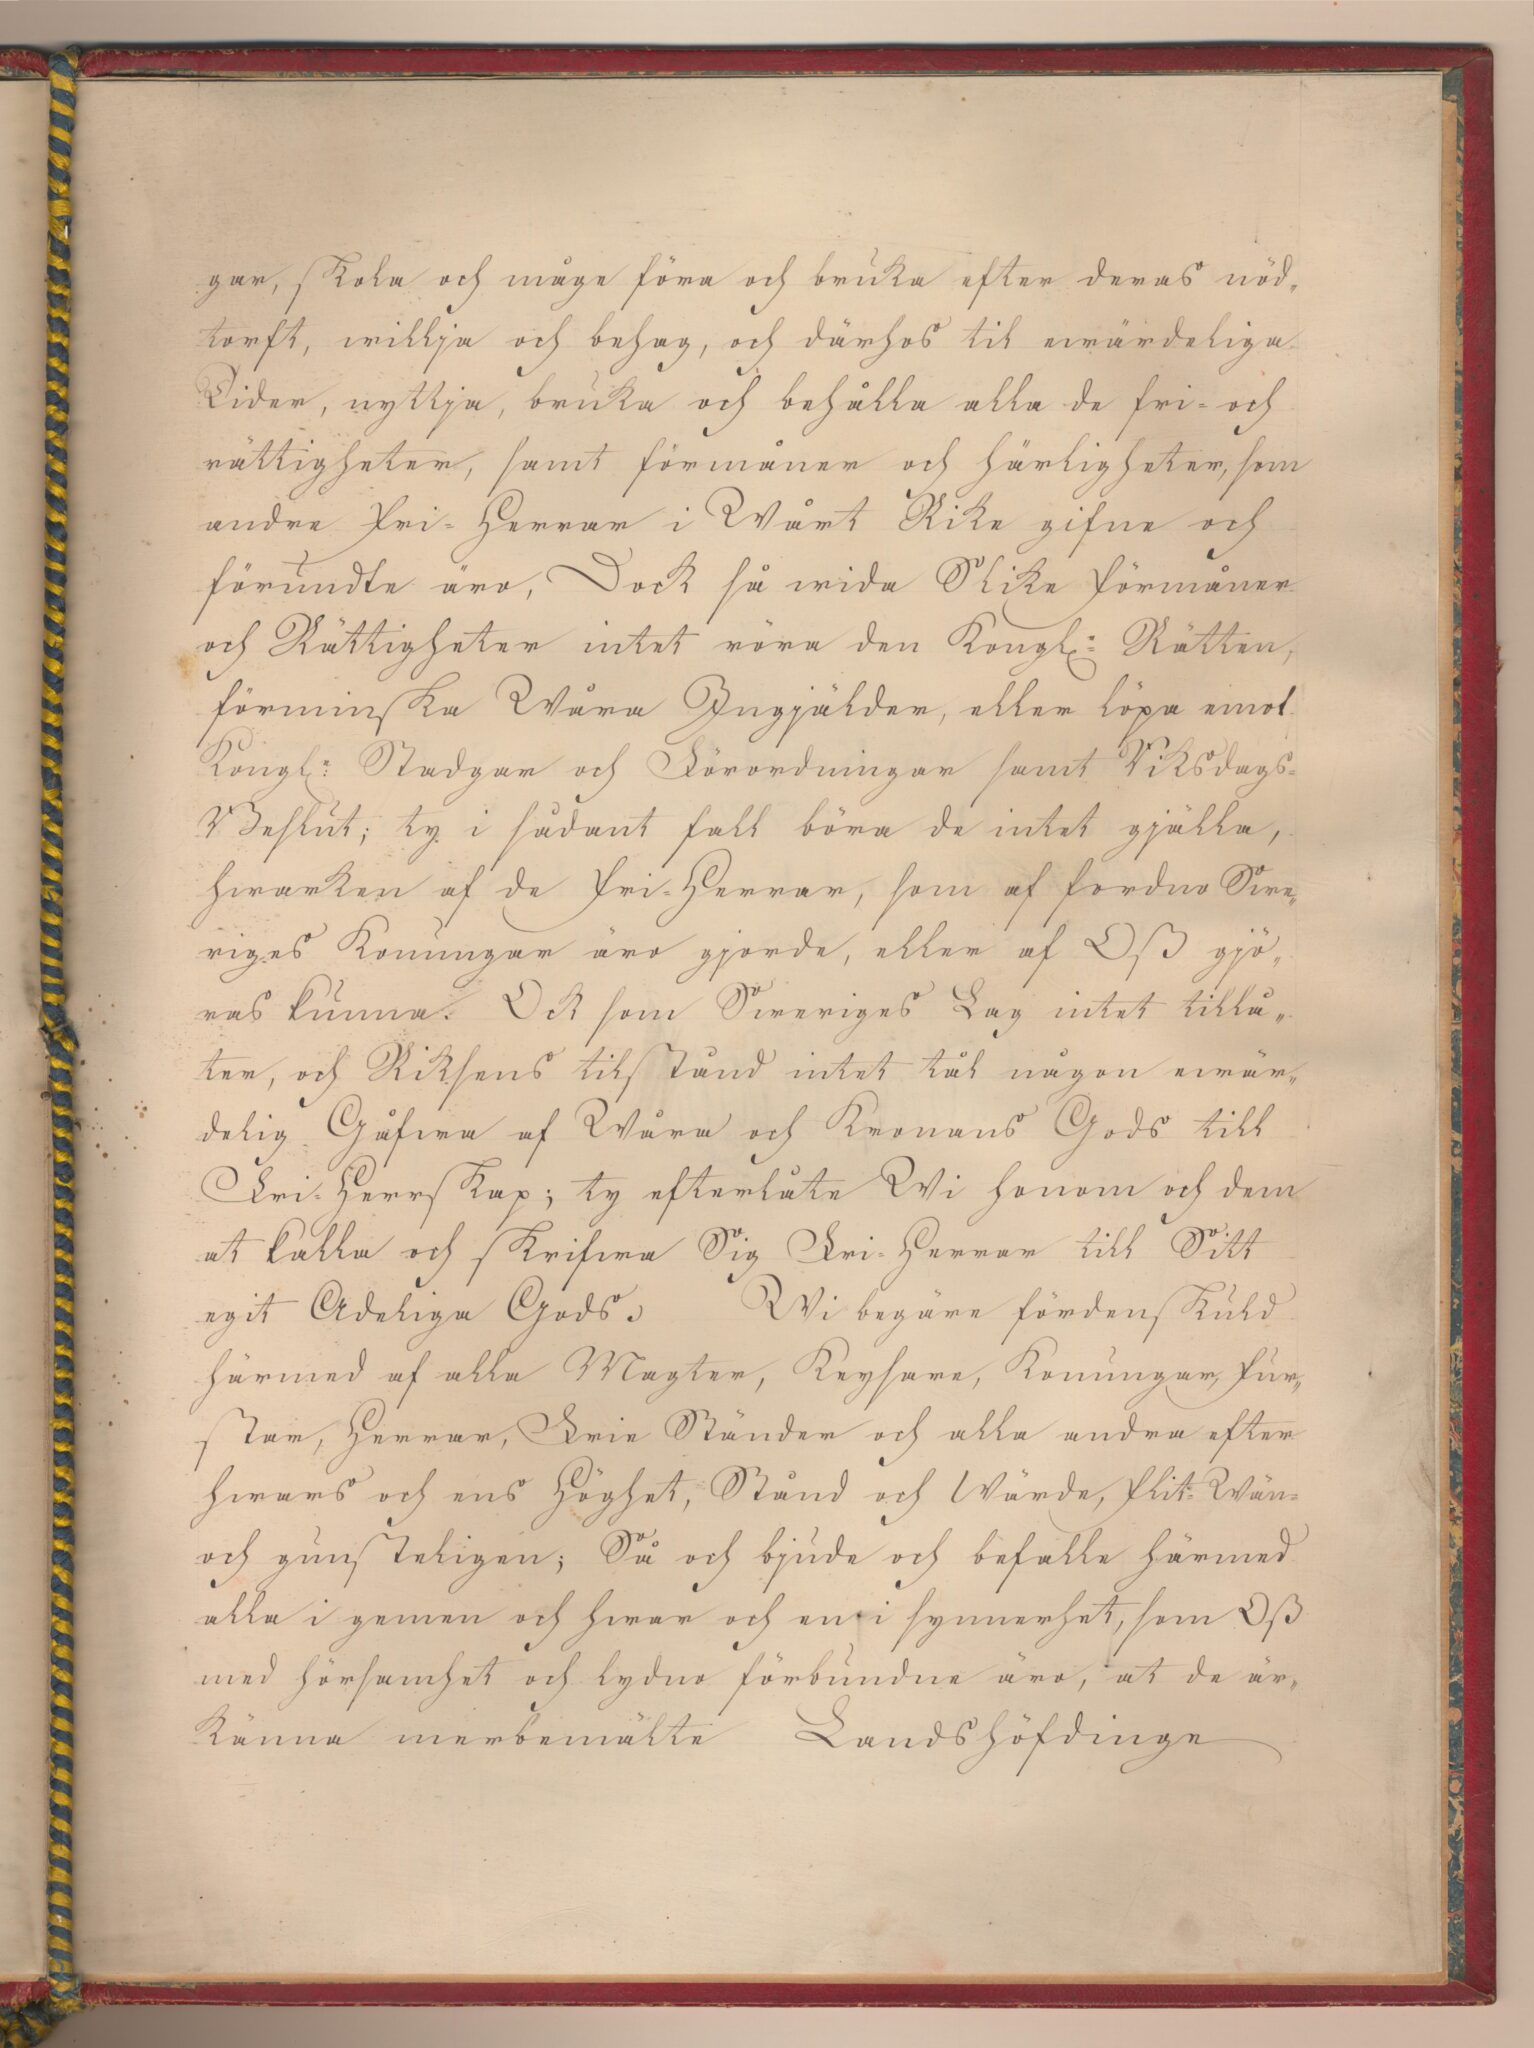 gar, skola och måge föra och bruka efter deras nöd„
torft, willja och behag, och därhos til ewärdeliga
Tider, nyttja, bruka och behålla alla de fri- och
rättigheter, samt förmåner och härligheter, som
andre Fri-Herrar i Wårt Rike gifne och
förundte äro, Dock så wida Slike förmåner
och Rättigheter intet röra den Kongl: Rätten,
förminska Wåra Ingjälder, eller löpa emot
Kongl: Stadgar och Förordningar samt Riksdags-
Beslut; ty i sådant fall böra de intet gjälla,
hwarken af de Fri-Herrar, som af fordno Swe„
riges Konungar äro gjorde, eller af Oß gjö„
ras kunna. Ock som Sweriges Lag intet tillå„
ter, och Riksens tilstånd intet tål någon ewär„
delig Gåfwa af Wåra och Kronans Gods till
Fri-Herrskap; ty efterlåte Wi honom och dem
at kalla och skrifwa Sig Fri-Herrar till Sitt
egit Adeliga Gods. Wi begäre fördenskuld
härmed af alla Magter, Keysare, Konungar, Fur„
star, Herrar, Frie Ständer och alla andra efter
hwars och ens Höghet, Stånd och Wärde, Flit- Wän-
och gunsteligen; Så och bjude och befalle härmed
alla i gemen och hwar och en i synnerhet, som Oß
med hörsamhet och lydno förbundne äro, at de är„
känna merbemälte Landshöfdinge